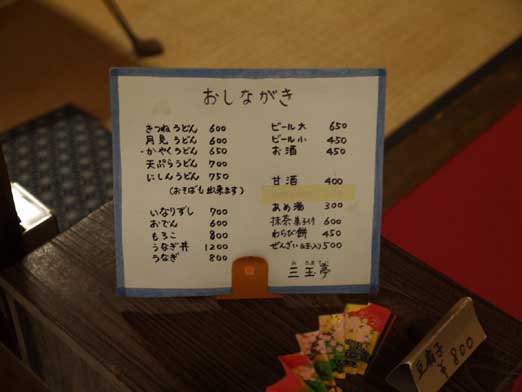 おしながき
きつねうどん 600
月見うどん 600
かやくうどん 650
天ぷらうどん 700
にしんうどん 750
(おそばも出来ます)
いなりずし 700
おでん 600
もろこ 800
うなぎ丼 1200
うなぎ 800
ビール大 650
ビール小 450
お酒 450
甘酒 400
あめ湯 300
抹茶 菓子付 600
わらび餅 450
ぜんざい(もち入り) 500
三玉亭
¥800